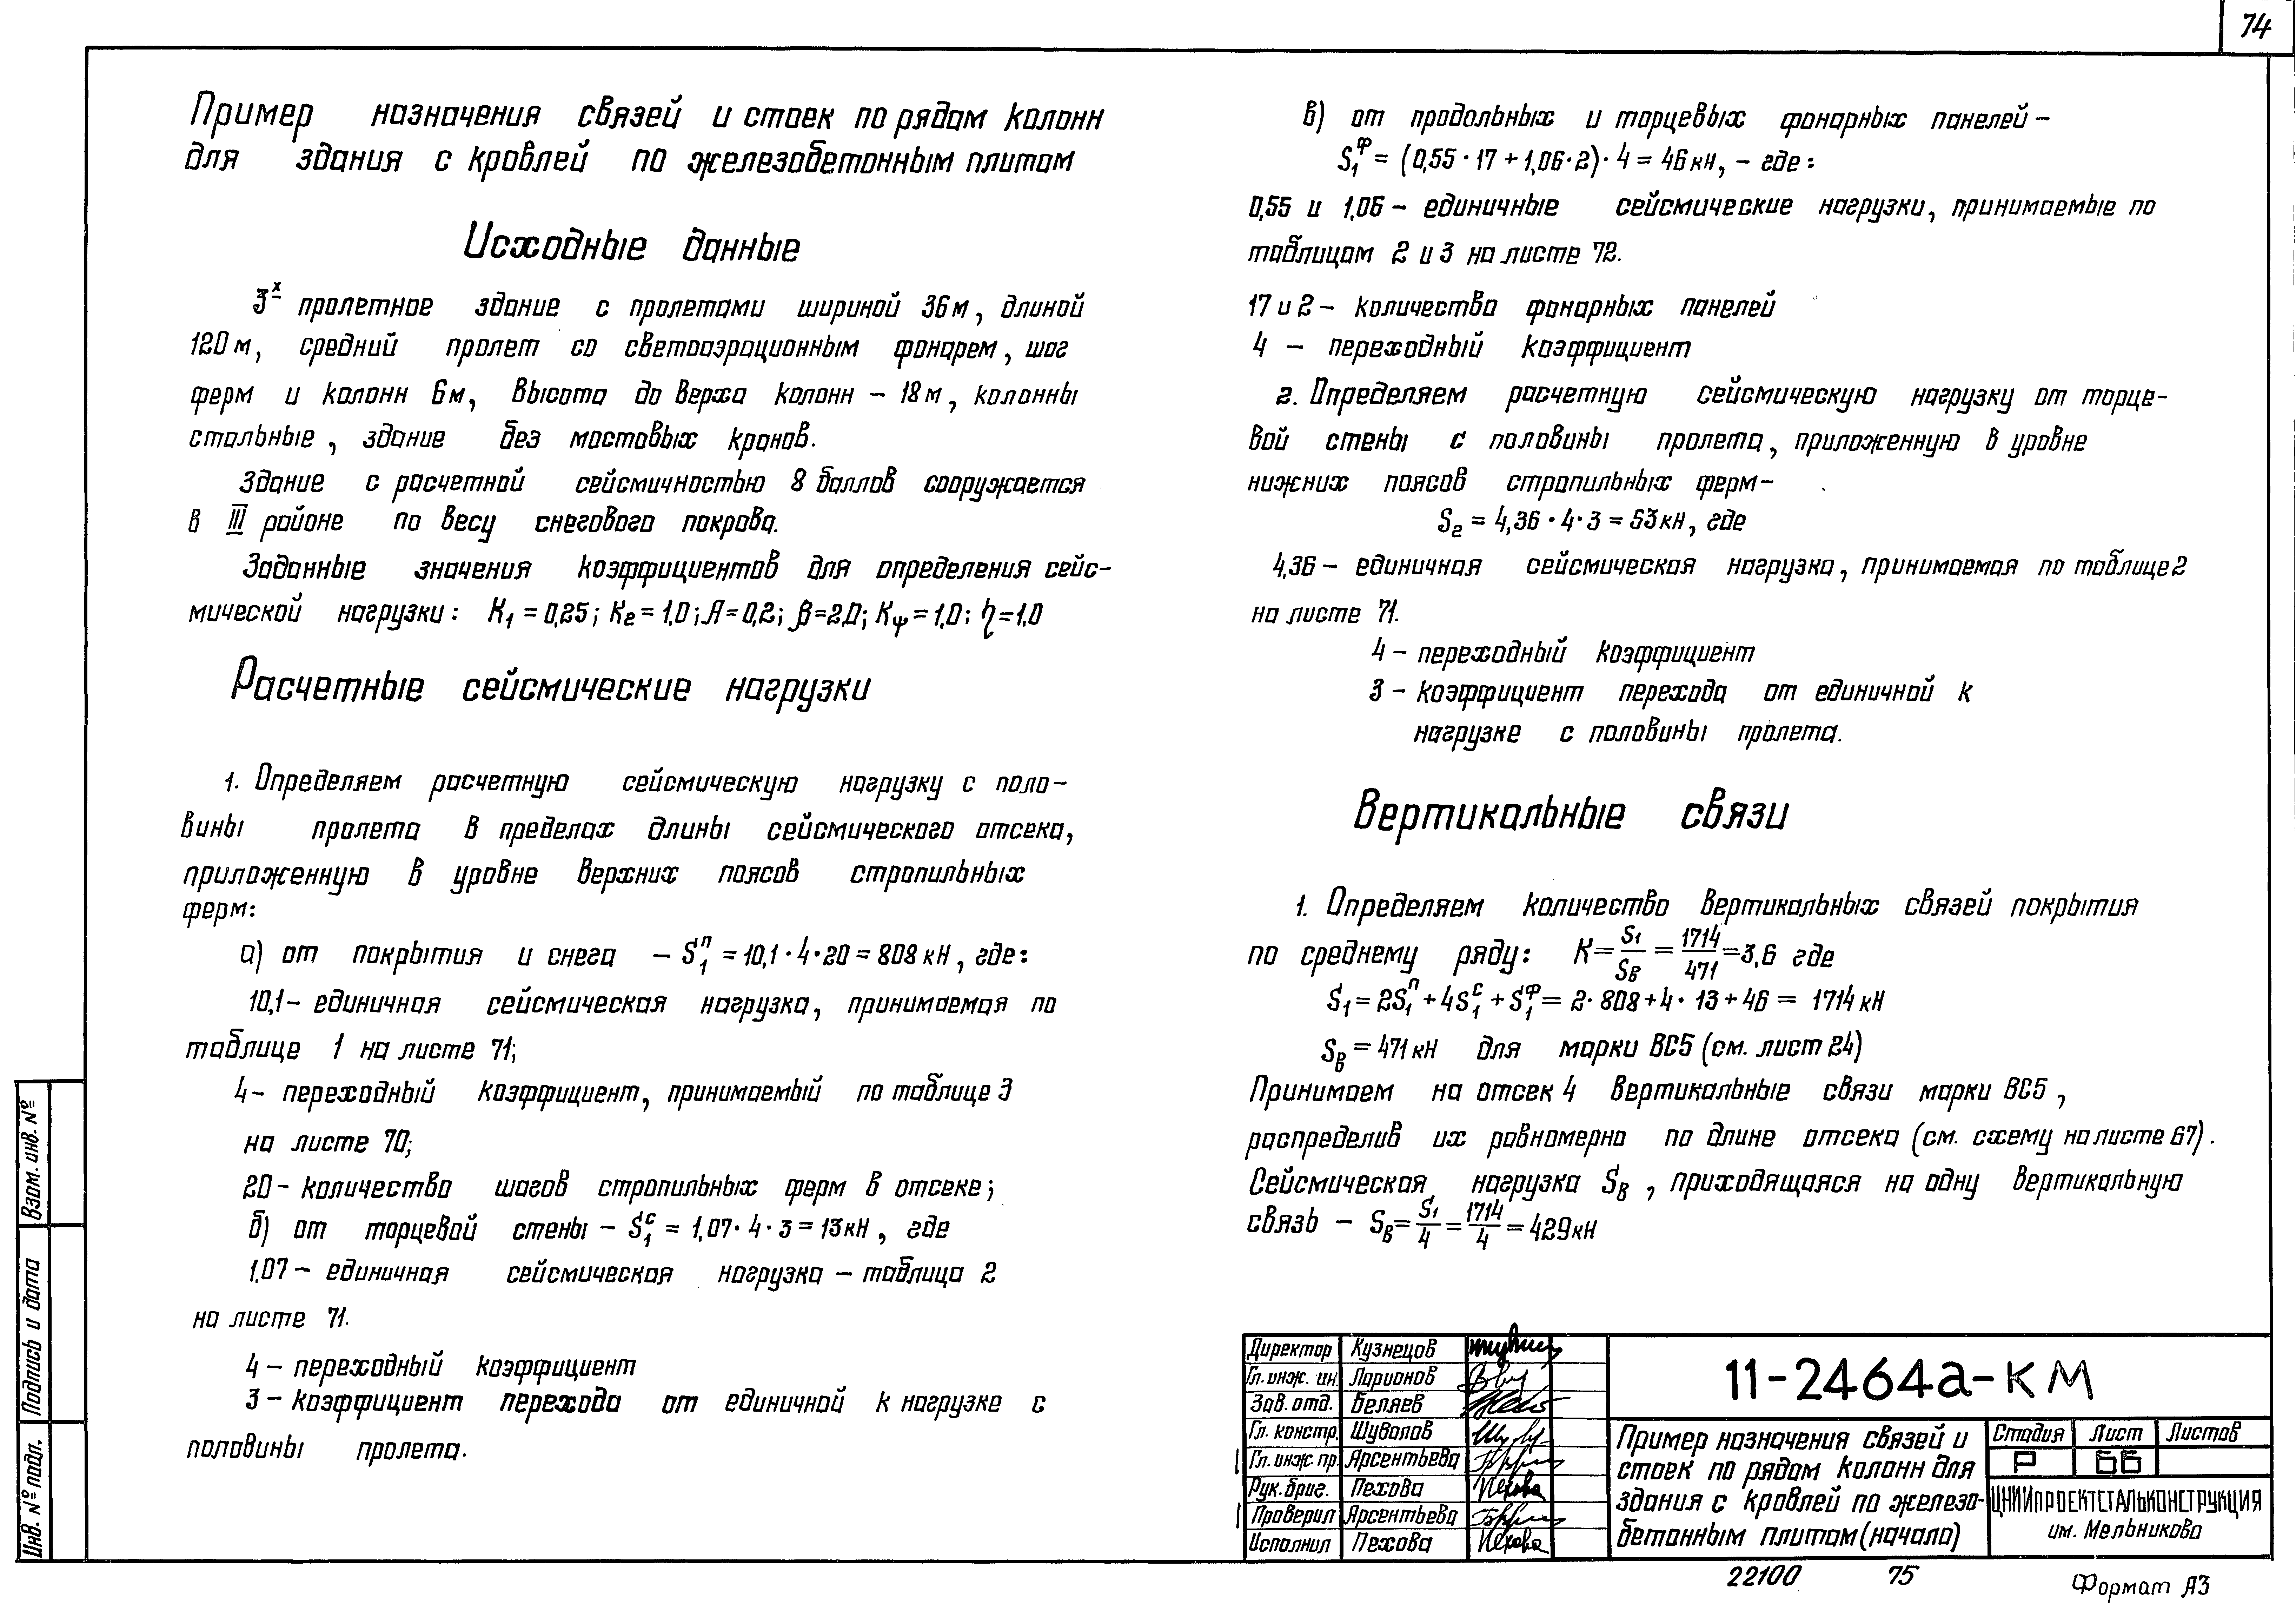 74
Пример назначения связей и стоек по рядам колонн
для здания с кровлей по железобетонным плитам
Исходные данные
3х пролетное здание с пролетами шириной 36м, длиной
120м, средний пролет со светоаэрационным фонарем, шаг
ферм и колонн 6м, высота до верха колонн – 18м, колонны
стальные, здание без мостовых кранов.
Здание с расчетной сейсмичностью 8 баллов сооружается
в III районе по весу снегового покрова.
Заданные значения коэффициентов для определения сейс-
мической нагрузки: К₁=0,25; К₂=1,0; А=0,2; β=2,0; Кψ=1,0; η=1,0
Расчетные сейсмические нагрузки
1. Определяем расчетную сейсмическую нагрузку с поло-
вины пролета в пределах длины сейсмического отсека,
приложенную в уровне верхних поясов стропильных
ферм:
а) от покрытия и снега – S₁ᴨ = 10,1·4·20 = 808 кН, где:
10,1 – единичная сейсмическая нагрузка, принимаемая по
таблице 1 на листе 71;
4 – переходный коэффициент, принимаемый по таблице 3
на листе 70;
20 – количество шагов стропильных ферм в отсеке;
б) от торцевой стены – S₁ᶜ = 1,07·4·3 = 13кН, где
1,07 – единичная сейсмическая нагрузка – таблица 2
на листе 71.
4 – переходный коэффициент
3 – коэффициент перехода от единичной к нагрузке с
половины пролета.
в) от продольных и торцевых фонарных панелей –
S₁ᶲ = (0,55·17 + 1,06·2)·4 = 46кН, – где:
0,55 и 1,06 – единичные сейсмические нагрузки, принимаемые по
таблицам 2 и 3 на листе 72.
17 и 2 – количество фонарных панелей
4 – переходный коэффициент
2. Определяем расчетную сейсмическую нагрузку от торце-
вой стены с половины пролета, приложенную в уровне
нижних поясов стропильных ферм –
S₂ = 4,36·4·3 = 53кН, где
4,36 – единичная сейсмическая нагрузка, принимаемая по таблице 2
на листе 71.
4 – переходный коэффициент
3 – коэффициент перехода от единичной к
нагрузке с половины пролета.
Вертикальные связи
1. Определяем количество вертикальных связей покрытия
по среднему ряду: К = S₁/Sв = 1714/471 = 3,6 где
S₁ = 2S₁ᴨ + 4S₁ᶜ + S₁ᶲ = 2·808 + 4·13 + 46 = 1714 кН
Sв = 471 кН для марки ВС5 (см. лист 24)
Принимаем на отсек 4 вертикальные связи марки ВС5,
распределив их равномерно по длине отсека (см. схему на листе 67).
Сейсмическая нагрузка Sв, приходящаяся на одну вертикальную
связь – Sв = S₁/4 = 1714/4 = 429кН
Взам. инв. №
Подпись и дата
Инв. № подл.
Директор Кузнецов
Гл. инж. ин. Ларионов
Зав. отд. Беляев
Гл. констр. Шувалов
Гл. инж. пр. Арсентьева
Рук. бриг. Пехова
Проверил Арсентьева
Исполнил Пехова
11-2464а-КМ
Пример назначения связей и
стоек по рядам колонн для
здания с кровлей по железо-
бетонным плитам (начало)
Стадия Лист Листов
Р 66
ЦНИИПРОЕКТСТАЛЬКОНСТРУКЦИЯ
им. Мельникова
22100 75
Формат А3